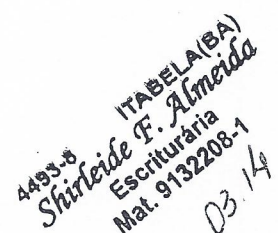 4493-6 ITABELA(BA)
Shirleide F. Almeida
Escriturária
Mat. 9132208-1
03.14